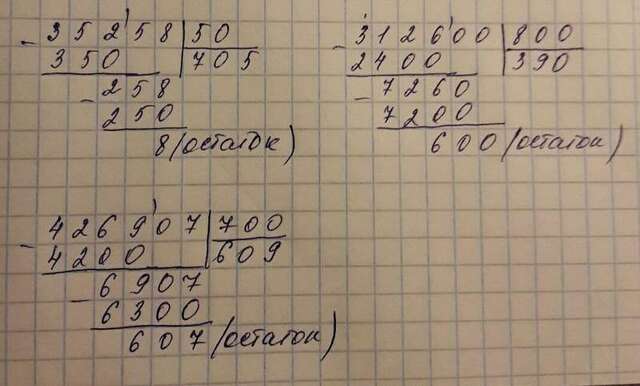 35258 50
350 705
258
250
8 (остаток)
312600 800
2400 390
7260
7200
600 (остаток)
426907 700
4200 609
6907
6300
607 (остаток)